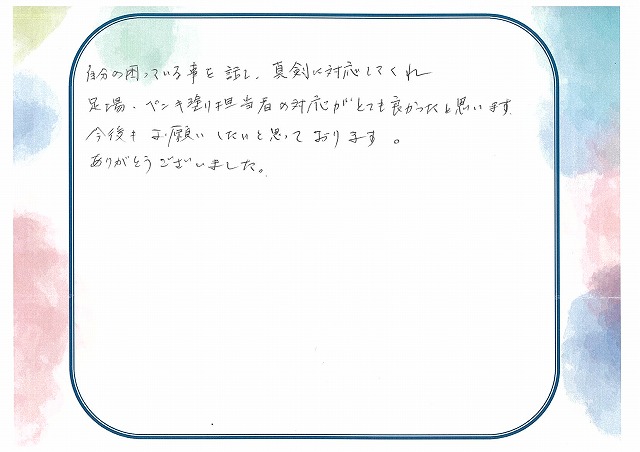 自分の困っている事を話し、真剣に対応してくれ
足場・ペンキ塗り担当者の対応がとても良かったと思います。
今後もお願いしたいと思っております。
ありがとうございました。